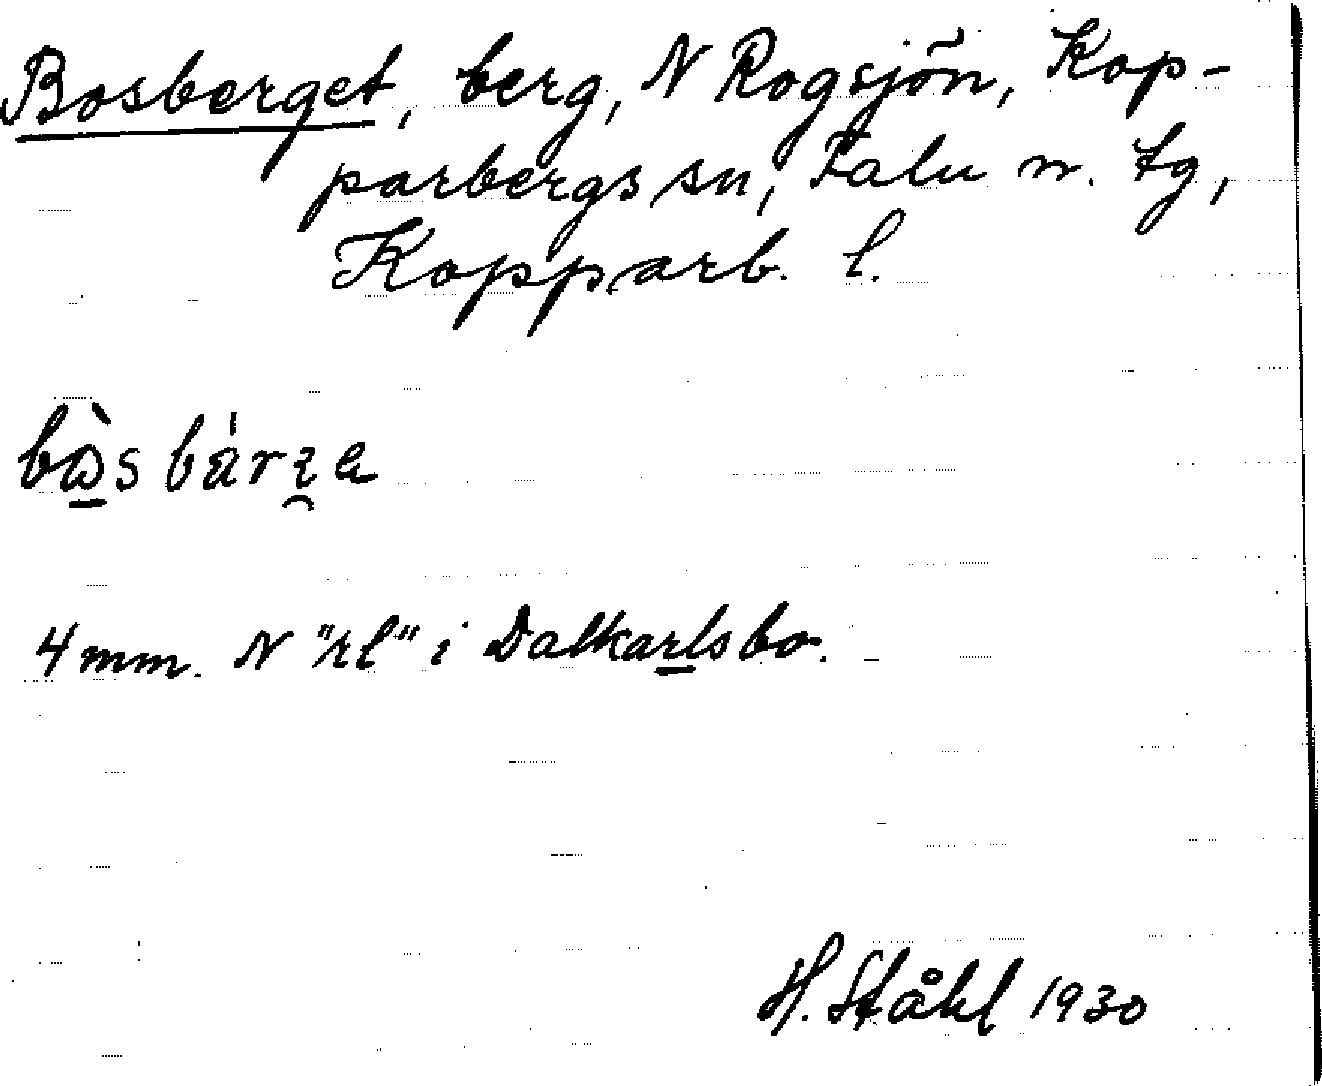 Bosberget, berg, N Rogsjön, Kop-
parbergs sn, Falu n. tg,
Kopparb. l.
bòs bárʐa
4 mm. N "rl" i Dalkarlsbo.
H. Ståhl 1930